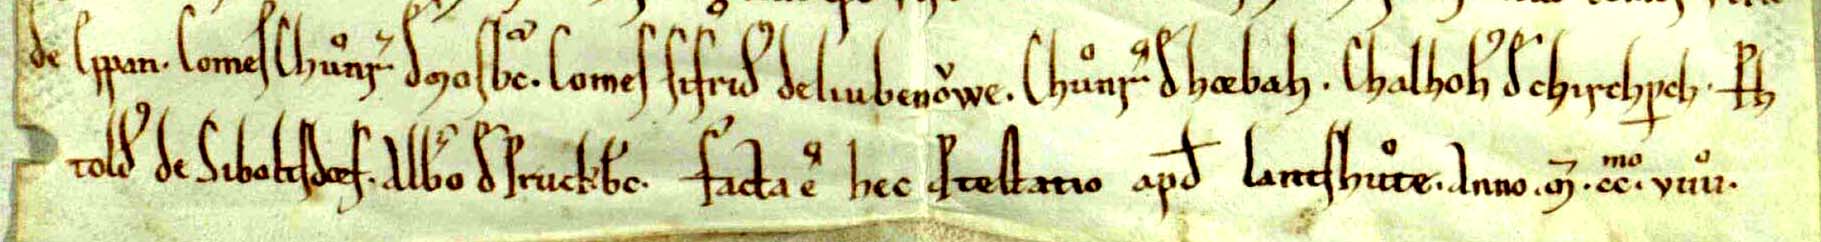 de Eppan. Comes Chůnr̄ d̄ Mosbc̄. Comes sifrid᾽ deliubenǒwe. Chůnr᾽ d̄ hœbah. Chalhoh᾽ d̄ chirchp̱ch. P̱h
told᾽ de Siboltsdorf. Alb̄o d̄ Pruckb̄c. facta ē hec ꝓtestatio apd̄ lantshůte. Anno. m̄. cc.ᵐᵒ viiii.ᵒ